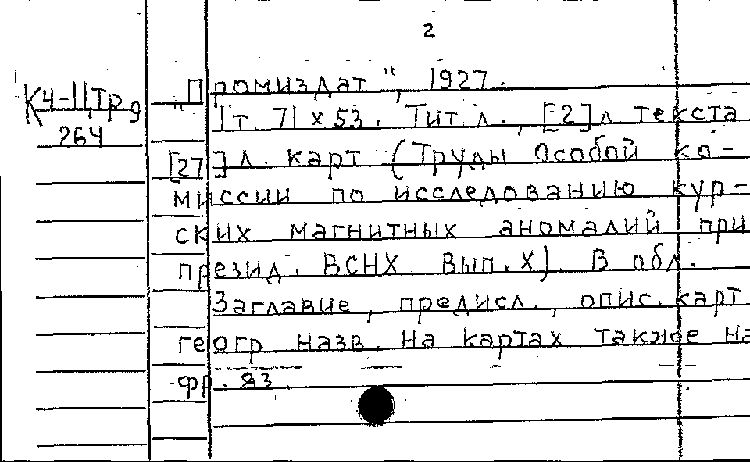 2
„Промиздат", 1927.
К4-Цтрд
264
1т 71 х 53. Тит. л., [2] л текста
[27] л. карт (Труды Особой ко-
миссии по исследованию кур-
ских магнитных аномалий при
презид. ВСНХ Вып. X). В обл.
Заглавие, предисл., опис. карт
геогр назв. на картах также на
фр. яз.